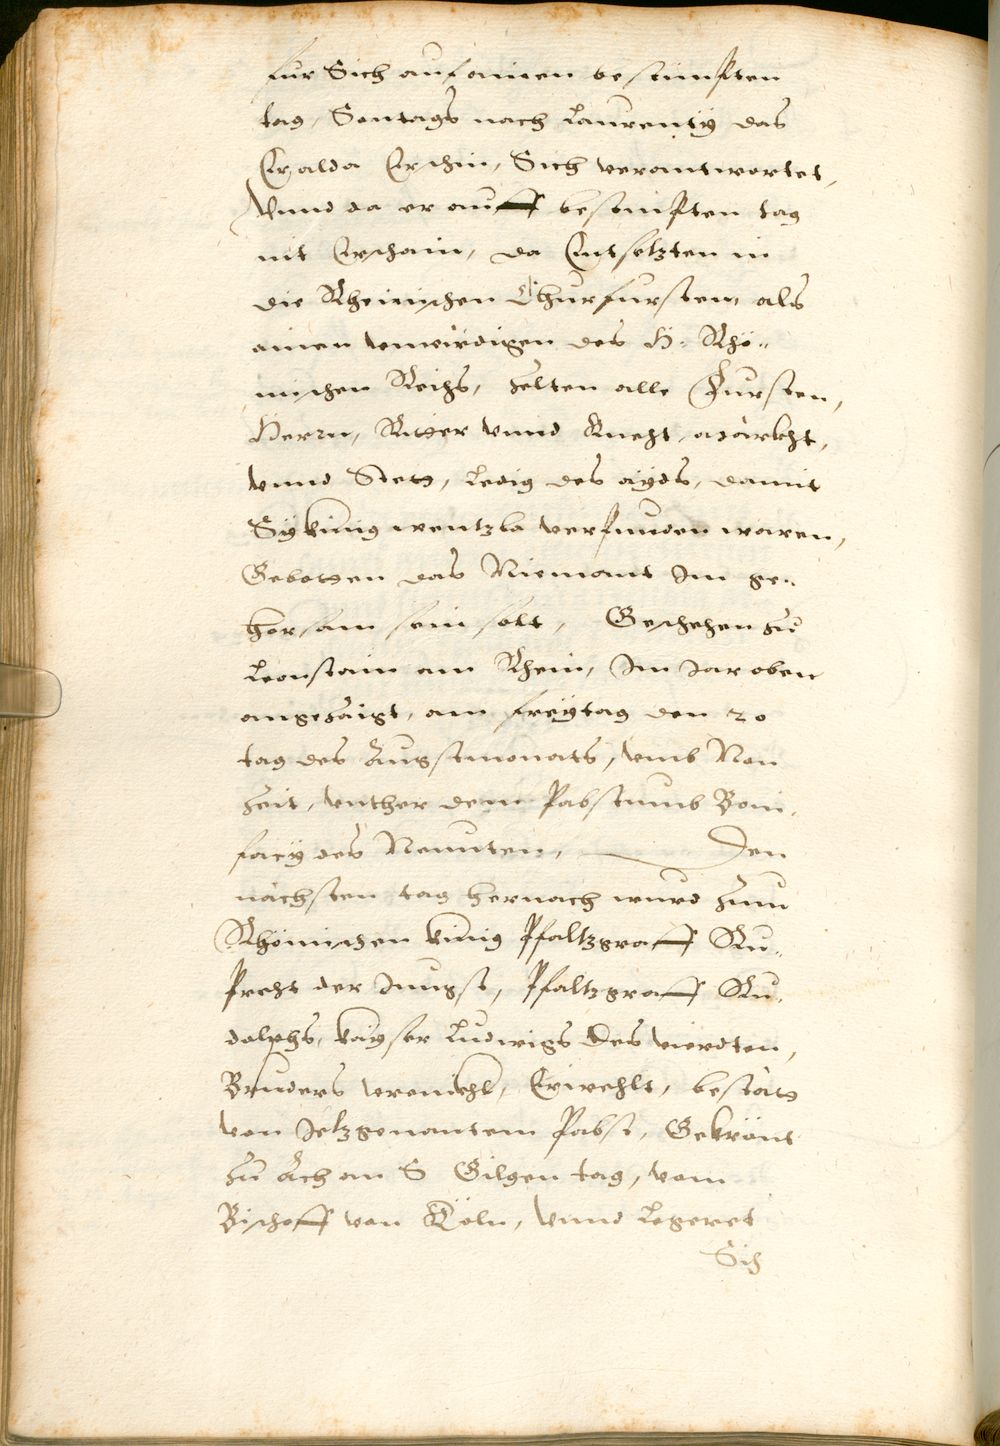 fur Sich auf ainen bestimpten
tag, Sontags nach Laurentÿ das
Er alda Erschin, Sich verantwortet,
Vnnd da er auff bestimpten tag
nit Erschain, da Entsetzten in
die Rheinischen Churfursten, als
ainen vnwirdigen des H. Rhö-
mischen Reichs, Zelten alle Fursten,
Herrn, Ritter vnnd Knecht, märckht,
vnnd Stett, ledig des aÿds, damit
Sÿ king wentzla verpunden waren,
Gebotten das Niemant Im ge-
horsam sein solt, Geschehen zu
Lonstain am Rhein, Im Jar oben
angezaigt, am freÿtag den 20
tag des Augstmonats, vmb Non
Zeit, vnther dem Pabstumb Boni-
facÿ des Neunten, Den
nächsten tag hernach wurd zum
Rhömischen kinig Pfaltzgraff Ru-
precht der Jungst, Pfaltzgraff Ru-
dolphs, kaÿser Ludwigs des vierdten,
Bruders vrenickhl, Erwehlt, bestätt
von Jetzgenantem Pabst, Gekrönt
zu Ach an S Gilgen tag, vom
Bischoff von Köln, vnnd legeret
Sich